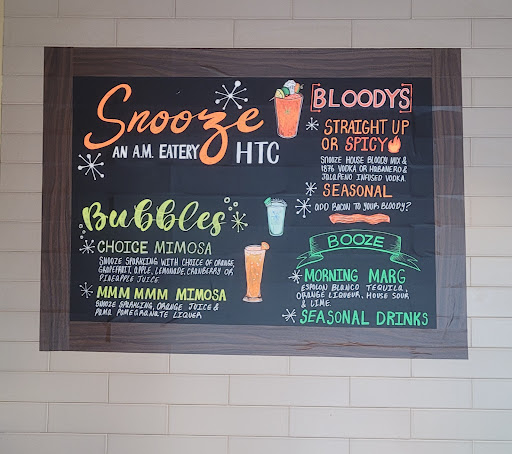 Snooze
AN A.M. EATERY HTC
Bubbles
CHOICE MIMOSA
SNOOZE SPARKLING WITH CHOICE OF ORANGE,
GRAPEFRUIT, APPLE, LEMONADE, CRANBERRY OR
PINEAPPLE JUICE
MMM MMM MIMOSA
SNOOZE SPARKLING, ORANGE JUICE &
PAMA POMEGRANATE LIQUER
BLOODYS
STRAIGHT UP
OR SPICY
SNOOZE HOUSE BLOODY MIX &
1876 VODKA OR HABANERO &
JALAPENO INFUSED VODKA
SEASONAL
ADD BACON TO YOUR BLOODY?
BOOZE
MORNING MARG
ESPOLON BLANCO TEQUILA,
ORANGE LIQUEUR, HOUSE SOUR
& LIME
SEASONAL DRINKS